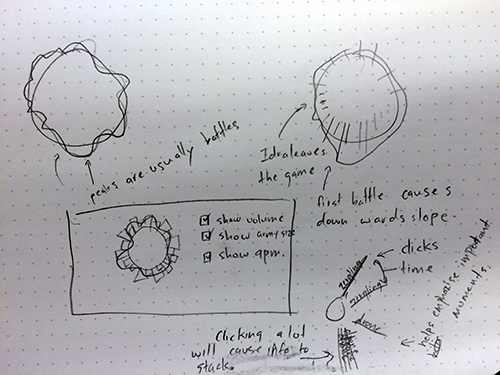 peaks are usually battles
Idra leaves
the game
first battle causes
downwards slope.
show volume
show army size
show apm.
zergling
zergling
drone
clicks
time
helps emphasise important
moments.
Clicking a lot
will cause info to
stack.